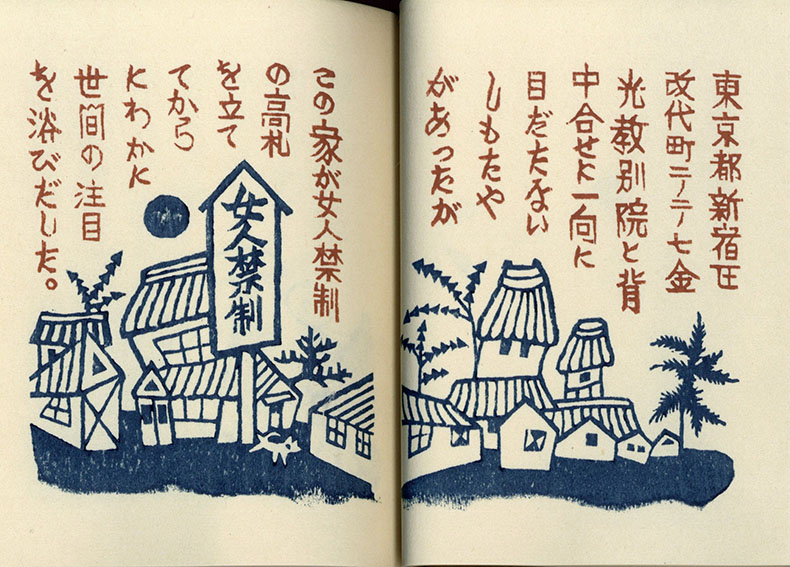 東京都新宿区
改代町二ノ二七金
光教別院と背
中合せに一向に
目だたない
しもたや
があったが
この家が女人禁制
の高札
を立て
てから
にわかに
世間の注目
を浴びだした。
女人禁制